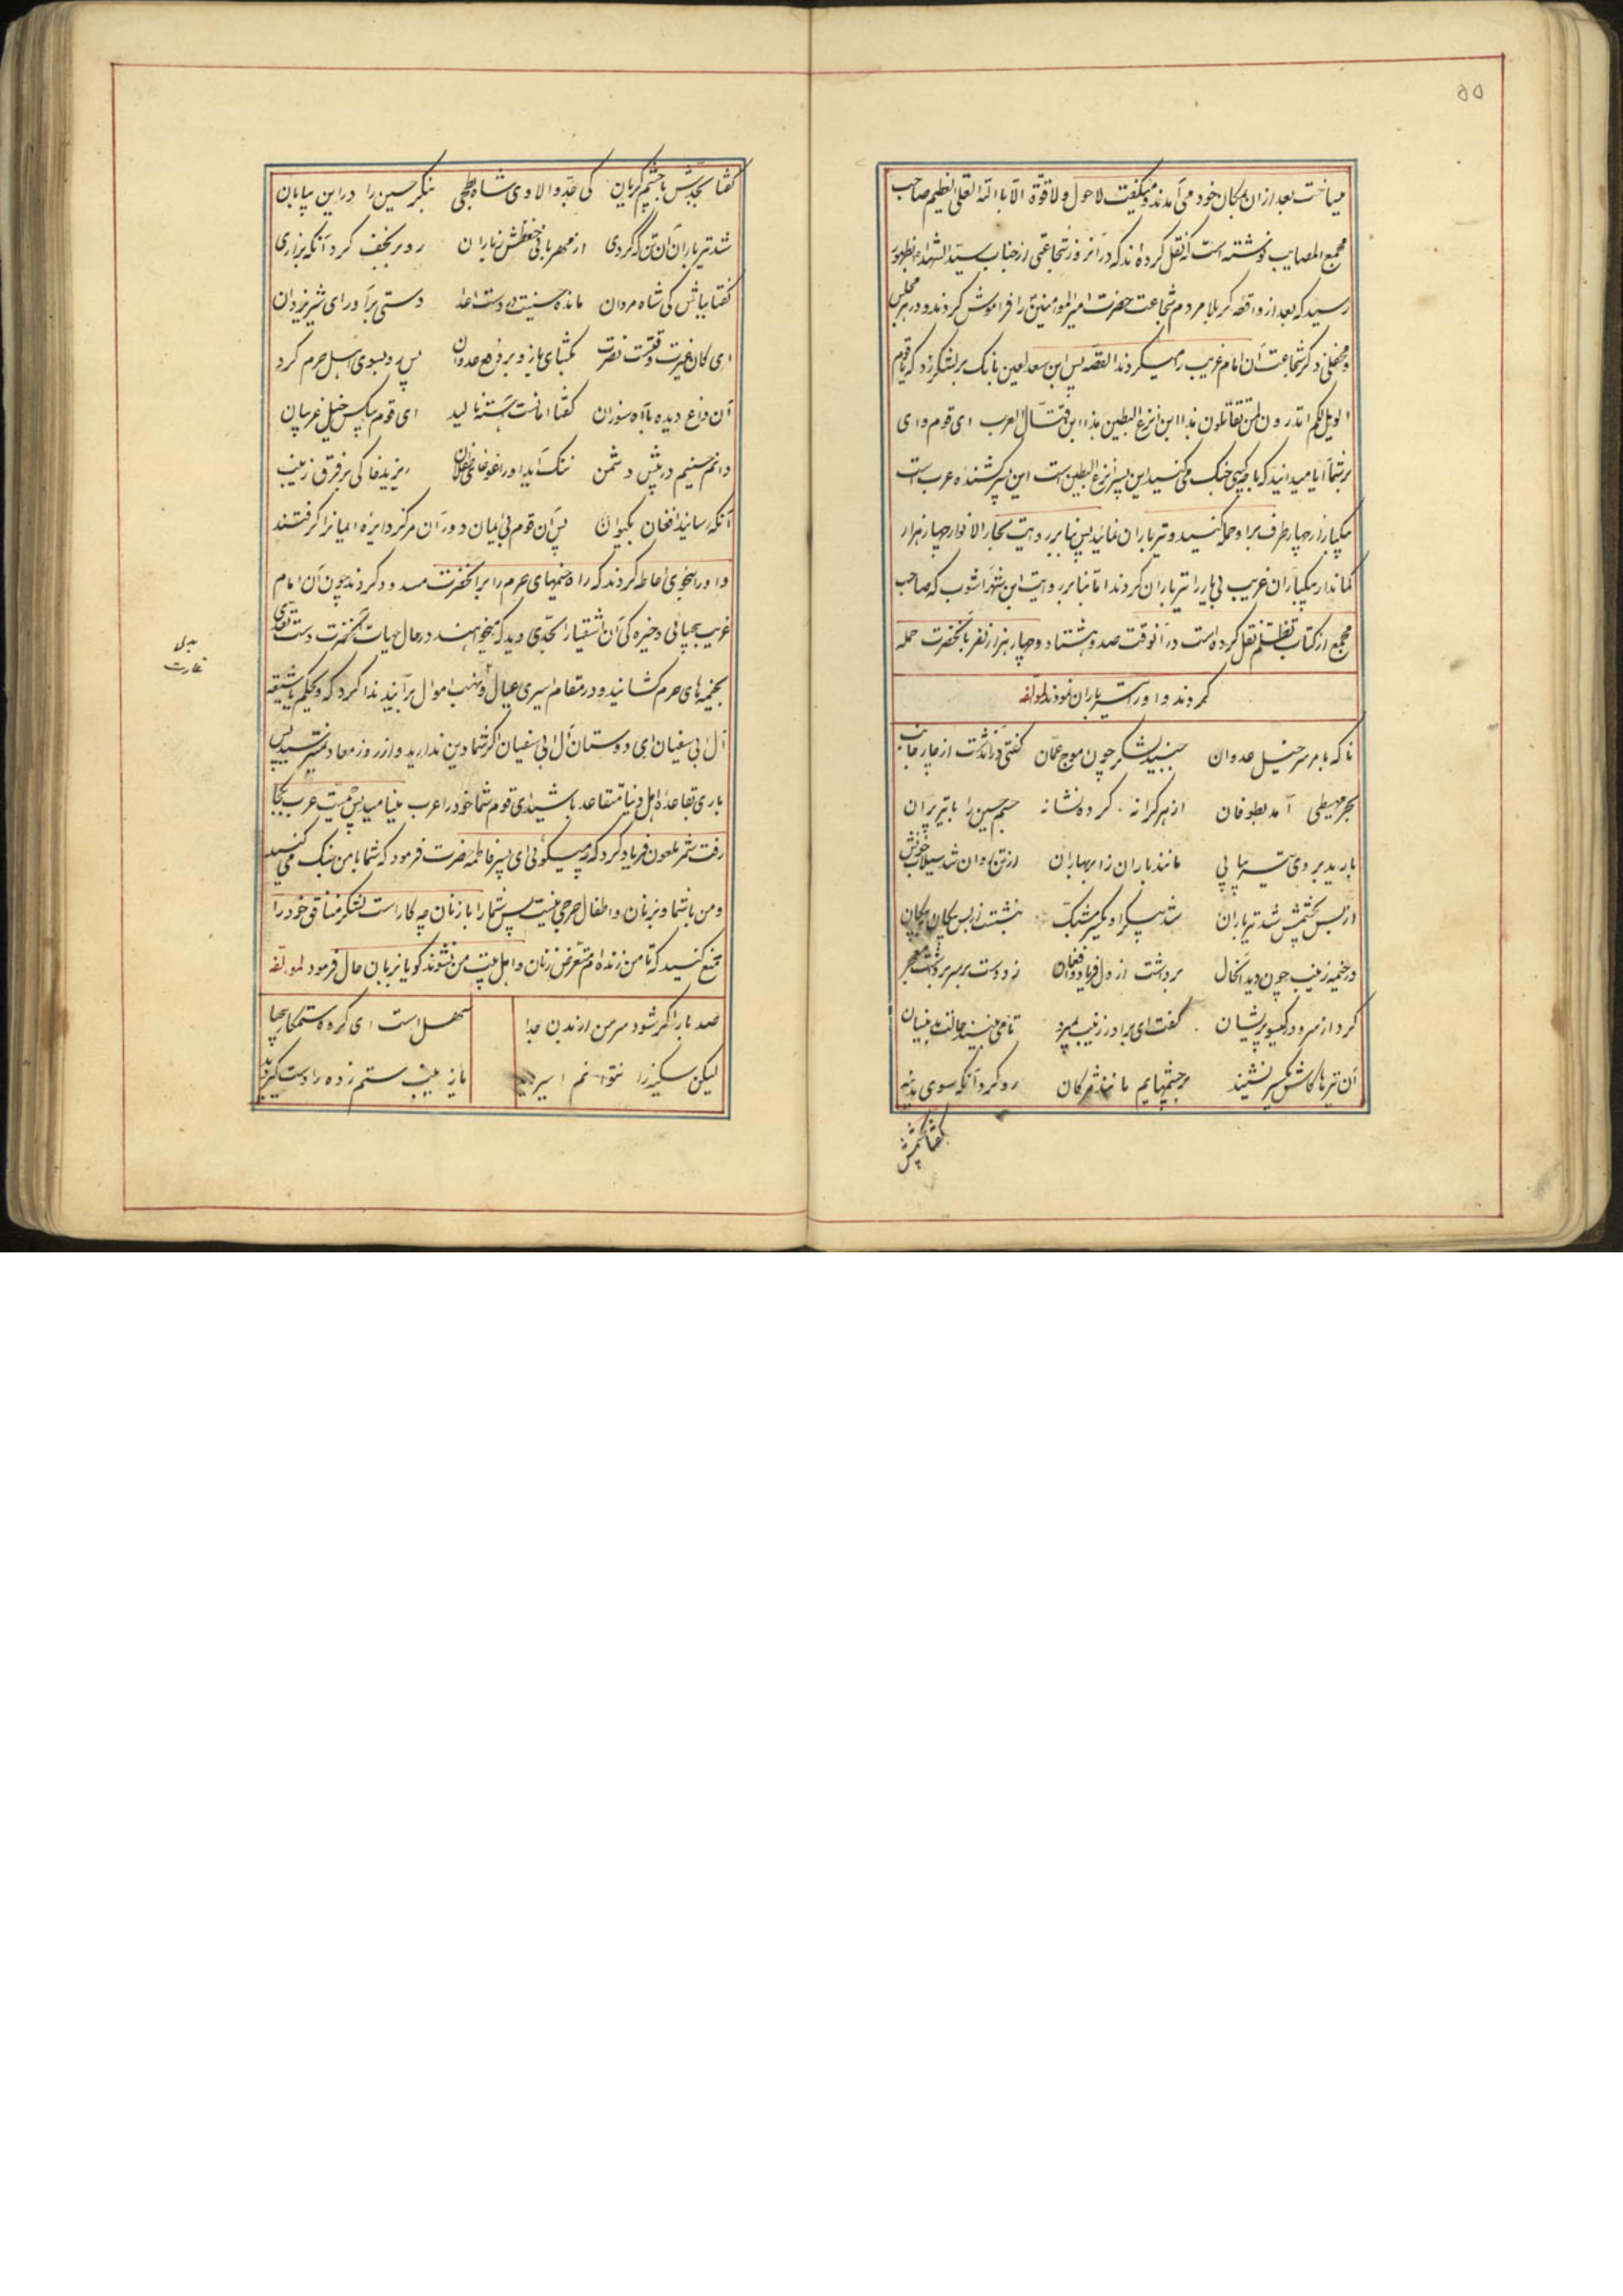 ۵۵
میساخت بعد از ان بمکان خود می آمدند و میگفت لا حول و لا قوة الا بالله العلی العظیم صاحب
مجمع المصایب نوشته است که نقل کرده اند که در انروز شجاعتی از جناب سید الشهداء بظهور
رسید که بعد از واقعه کربلا مردم شجاعت حضرت امیر المومنین را فراموش کردند و در هر مجلس
و محفلی ذکر شجاعت آن امام غریب را میکردند القصه پس ابن سعد لعین بانک بر لشکر زد که یا قوم
الویل لکم اتدرون لمن تقاتلون هذا ابن انزع البطین هذا ابن قتال العرب ای قوم وای
بر شما آیا میدانید که با چه کسی جنک می کنید این پسر انزع البطین است این پسر کشنده عرب است
یکبار از چهار طرف بر او حمله کنید و تیر باران نمائید پس بنا بر روایت بحار الانوار چهار هزار
کماندار یکبار آن غریب بی یار را تیر باران کردند اما بنا بر روایت ابن شهرآشوب که صاحب
مجمع از کتاب تظلم نقل کرده است در آنوقت صد و هشتاد و چهار هزار نفر بآنحضرت حمله
کردند و او را تیر باران نمودند لمؤلفه
ناکه بامر سرخیل عدوان جنبید لشکر چون موج عمان گفتی در انذشت از چار جانب
بحر محیطی آمد بطوفان از هر کرانه کرده نشانه جسم حسین را با تیر پران
بارید بر وی تیر پیاپی مانند باران ز ابر بهاران از تن روان شد سیلاب خونش
از بس بجسمش شد تیر باران شد پیکر او یکسر مشبک بنشست از بس پیکان بپیکان
در خیمه زینب چون دید آنحال برداشت از دل فریاد و افغان زد دست بر سر برداشت معجر
کرد از سر درد کیسو پریشان گفت ای برادر زینب بمیرد تا می نبیند حالت بدینسان
آن تیرها کاش یکسر نشیند بر چشمهایم مانند مژکان رو کرد آنکه سوی مدینه
گفتا بجدش با چشم کریان کی جد والا وی شاه بطحی بنگر حسین را در این بیابان
شد تیر باران آن تن که کردی از مهربانی حفظش ز باران رو بر نجف کرد آنکه بزاری
گفتا ببابش کی شاه مردان مانده حسینت در دست اعدا دستی برآور ای شیر یزدان
ای کان غیرت وقتست نصرت بکشای بازو بر دفع عدوان پس رو بسوی اهل حرم کرد
آن داغ دیده با آه سوزان گفتا امانت آهسته نالید ای قوم بیکس خیل غریبان
دانم حسینم در پیش دشمن ننک آید او را غوغای طفلان ریزید خاکی بر فرق زینب
آنکه رسانید افغان بکیوان پس آن قوم بی ایمان دور آن مرکز دایره ایمانرا کرفتند
و او را بنحوی احاطه کردند که راه خیمهای حرم را بر آنحضرت مسدود کردند چون آن امام
غریب بیحیائی و خیره کی آن اشقیا را بحدی دید که میخواهند در حال حیات آنحضرت دست تعدی
بخیمه های حرم کشانید و در مقام اسیری عیال و نهب اموال برآیند ندا کرد که ویحکم یا شیعه
آل ابی سفیان ای دوستان آل ابی سفیان اگر شما دین ندارید و از روز معاد نمیترسید پس
باری بقاعده اهل دنیا متقاعد باشید ای قوم شما خود را عرب مینامید پس حمیت عرب کجا
رفت شمر ملعون فریاد کرد که چه میگوئی ای پسر فاطمه حضرت فرمود که شما با من جنک می کنید
و من با شما و بر زنان و اطفال حرجی نیست پس شما را با زنان چه کار است لشکر منافق خود را
منع کنید که تا من زنده ام متعرض زنان و اهل بیت من نشوند کویا بزبان حال فرمود لمؤلفه
صد بار اگر شود سر من از بدن جدا سهل است ای کروه ستمکار بیحیا
لیکن سکینه را نتوانم اسیر دید یا زینب ستم زده را دستگیر دید
غارت
گفتا بجدش